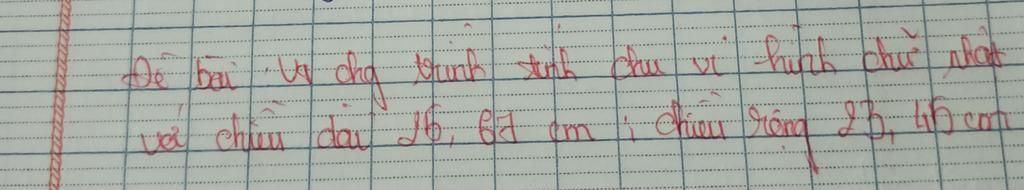 Đề bài vẽ chg trình tính chu vi hình chữ nhật
với chiều dài 26,67 cm; chiều rộng 23,45 cm